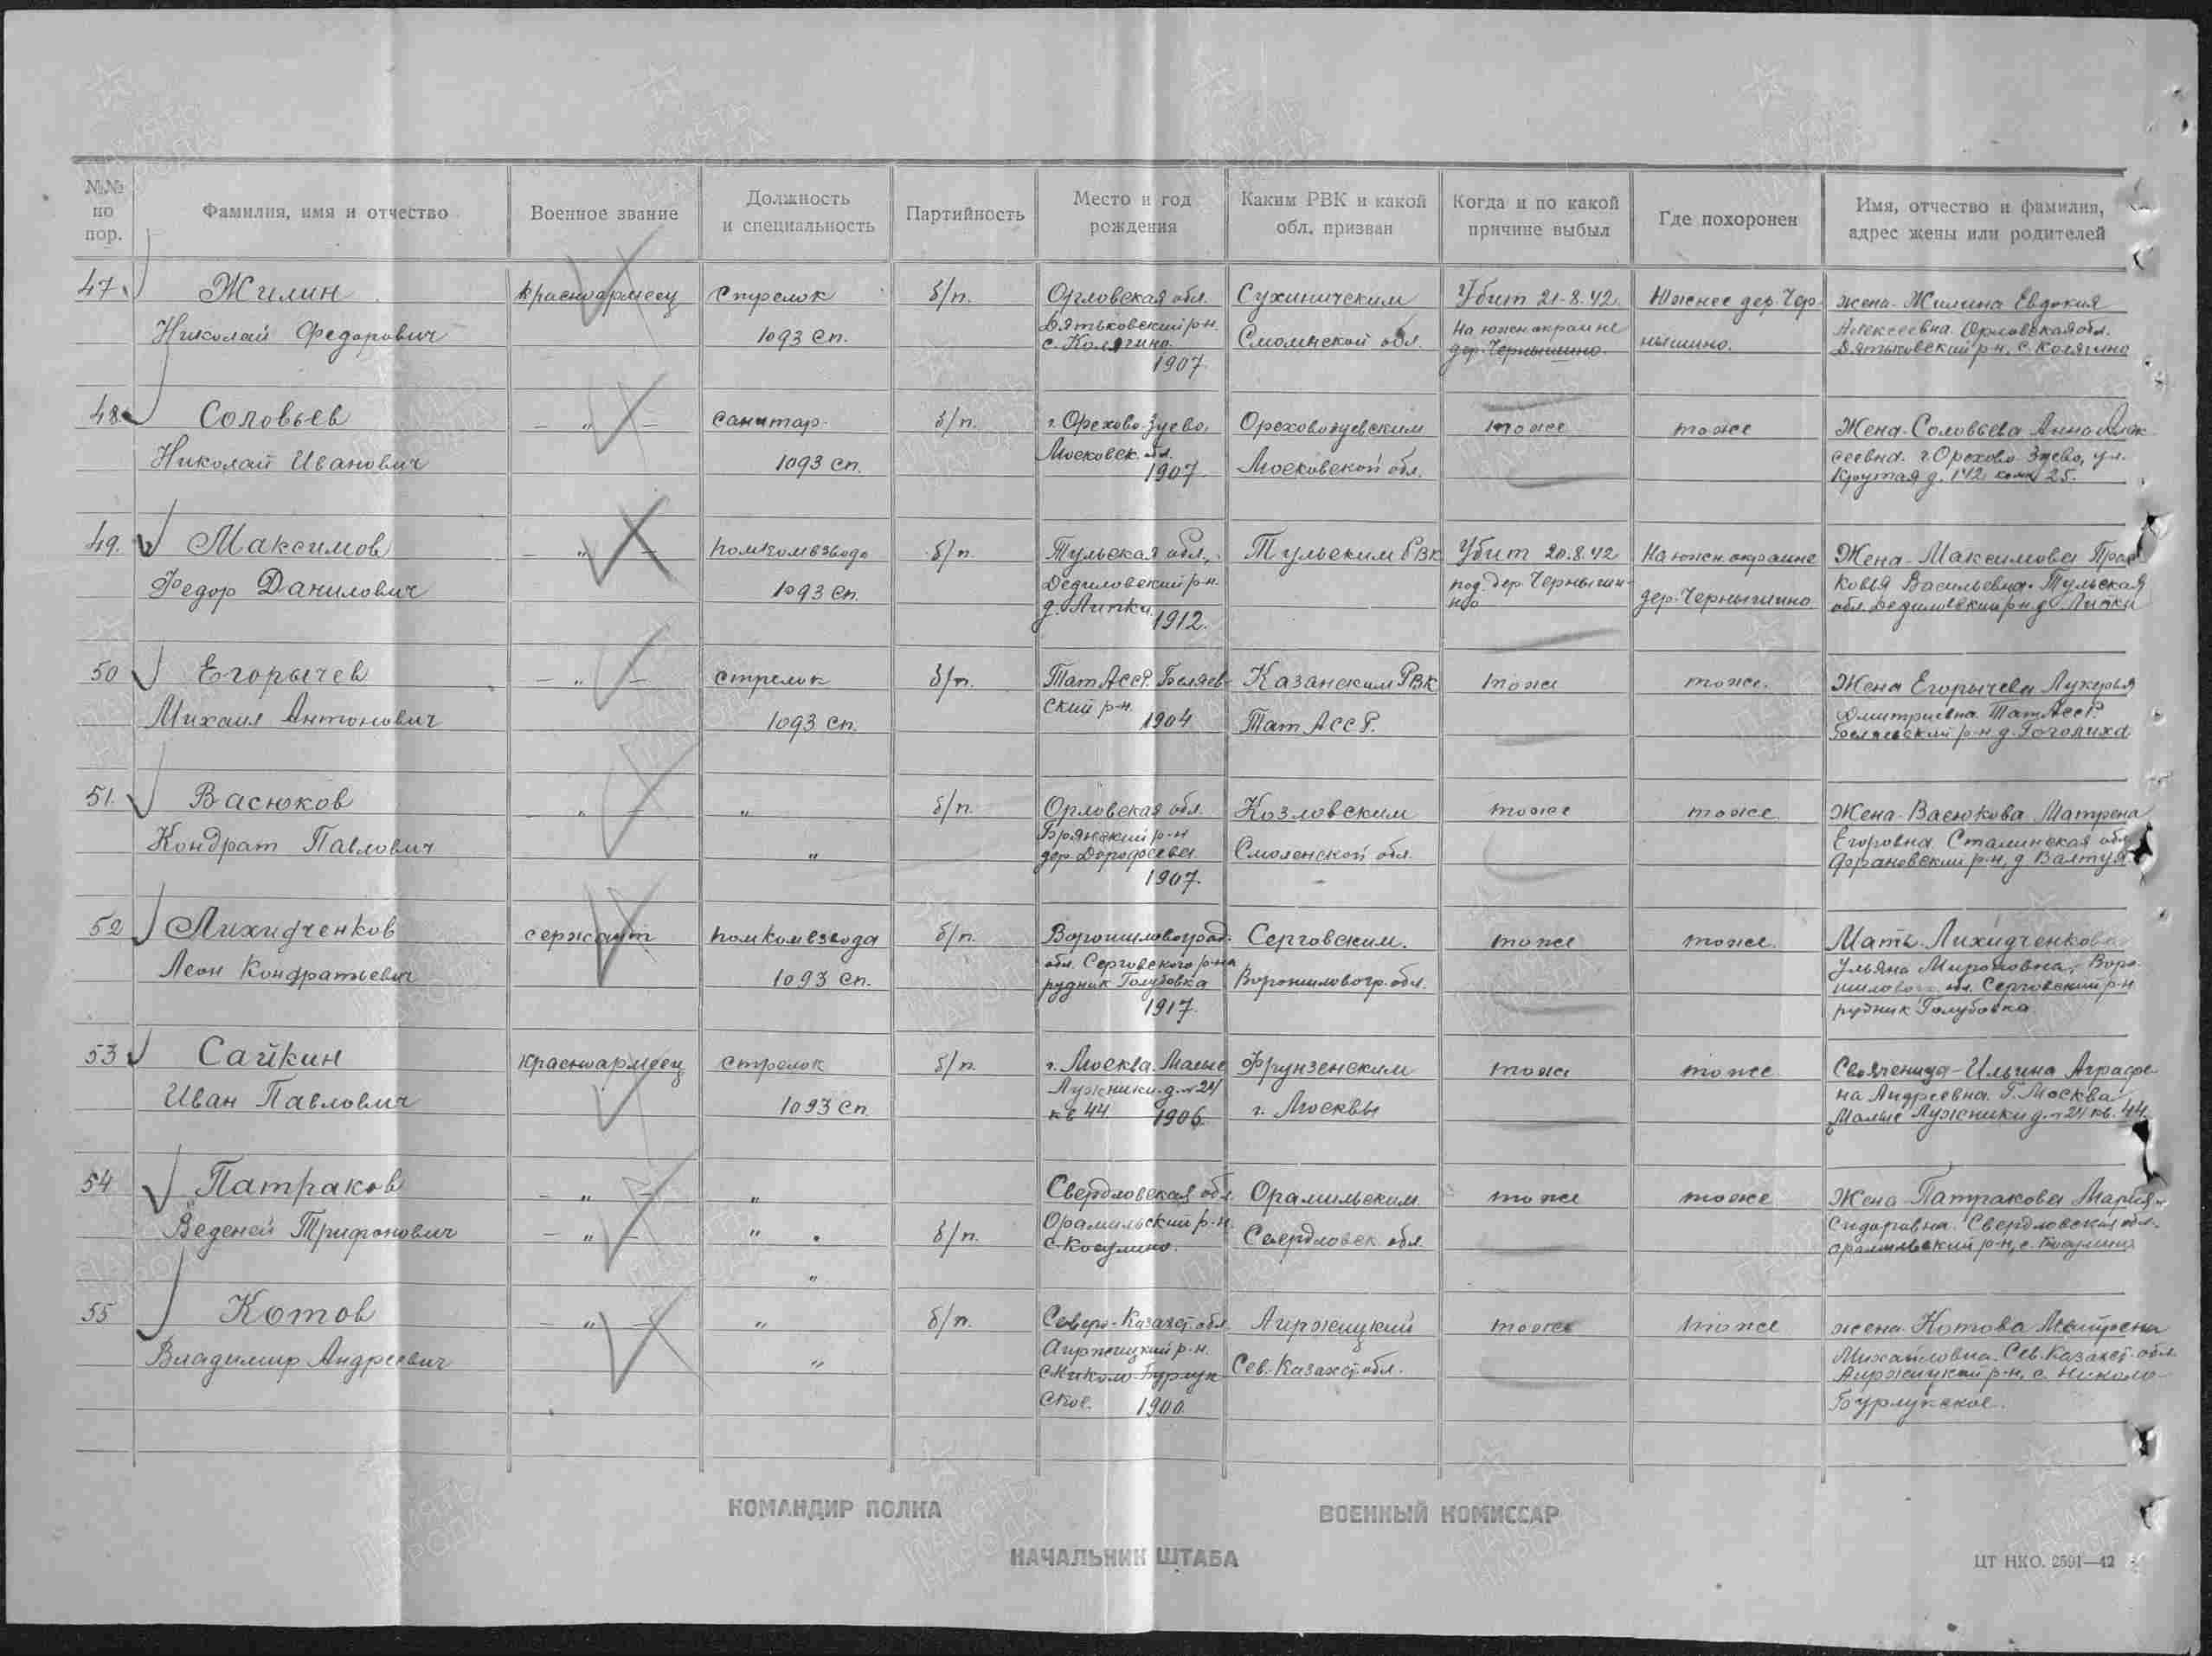 №№ по пор.
Фамилия, имя и отчество
Военное звание
Должность и специальность
Партийность
Место и год рождения
Каким РВК и какой обл. призван
Когда и по какой причине выбыл
Где похоронен
Имя, отчество и фамилия, адрес жены или родителей
47.
Жилин
Николай Федорович
красноармеец
Стрелок
1093 сп.
б/п.
Орловская обл.
Дятьковский р-н.
с. Колягино.
1907.
Сухиничским
Смоленской обл.
Убит 21.8.42.
На южн окраине
дер. Чернышино.
Южнее дер. Чер-
нышино.
жена - Жилина Евдокия
Алексеевна. Орловская обл.
Дятьковский р-н, с. Колягино
48.
Соловьев
Николай Иванович
— „ —
санитар.
1093 сп.
б/п.
г. Орехово-Зуево,
Московск. обл.
1907.
Ореховозуевским
Московской обл.
тоже
тоже
Жена - Соловьева Анна Алек
сеевна. г. Орехово-Зуево, ул.
Крутая д. 142 комн 25.
49.
Максимов
Федор Данилович
— „ —
помкомвзвода
1093 сп.
б/п.
Тульская обл.,
Дедиловский р-н.
д. Липки.
1912.
Тульским РВК
Убит 20.8.42
под. дер. Черныши-
но
На южн. окраине
дер. Чернышино
Жена - Максимова Прас
ковья Васильевна. Тульская
обл. Дедиловский р-н д. Липки
50
Егорычев
Михаил Антонович
— „ —
стрелок
1093 сп.
б/п.
Тат АССР.
ский р-н.
1904
Казанским РВК
Тат АССР.
тоже
тоже.
Жена Егорычева Лукерья
Дмитриевна. Тат АССР.
р-н д. Гоголиха
51.
Васюков
Кондрат Павлович
„ —
„
„
б/п.
Орловская обл.
Брянский р-н
дер. Дорофеева.
1907.
Козловским
Смоленской обл.
тоже
тоже.
Жена - Васюкова Матрена
Егоровна. Сталинская обл
р-н, д.
52
Лихидченков
Леон Кондратьевич
сержант
помкомвзвода
1093 сп.
б/п.
Ворошиловоград.
обл. Серговского р-на
рудник Голубовка
1917.
Серговским.
Ворошиловогр. обл.
тоже
тоже.
Мать - Лихидченкова
Ульяна Мироновна, Воро-
шиловог. обл. Серговский р-н
рудник Голубовка.
53
Сайкин
Иван Павлович
красноармеец
стрелок
1093 сп.
б/п.
г. Москва. Малые
Лужники д. № 24
кв 44 1906.
Фрунзенским
г. Москвы
тоже
тоже
Свояченица - Ильина Аграфе
на Андреевна. Г. Москва
Малые Лужники д. № 24 кв. 44
54
Патраков
Веденей Трифонович
— „ —
— „ —
„
„
„
б/п.
Свердловская обл.
Орамильский р-н.
с. Косулино.
Орамильским
Свердловск обл.
тоже
тоже
Жена Патракова Мария
Сидоровна. Свердловская обл.
Орамильский р-н, с. Косулино
55
Котов
Владимир Андреевич
— „ —
„
„
б/п.
Северо-Казахст. обл.
р-н.
с. Николо-Бурлук
ское. 1900
Сев. Казахст. обл.
тоже
тоже
жена Котова Матрена
Михайловна. Сев. Казахст. обл.
р-н, с. Николо-
Бурлукское.
КОМАНДИР ПОЛКА
ВОЕННЫЙ КОМИССАР
НАЧАЛЬНИК ШТАБА
ЦТ НКО. 2591—42